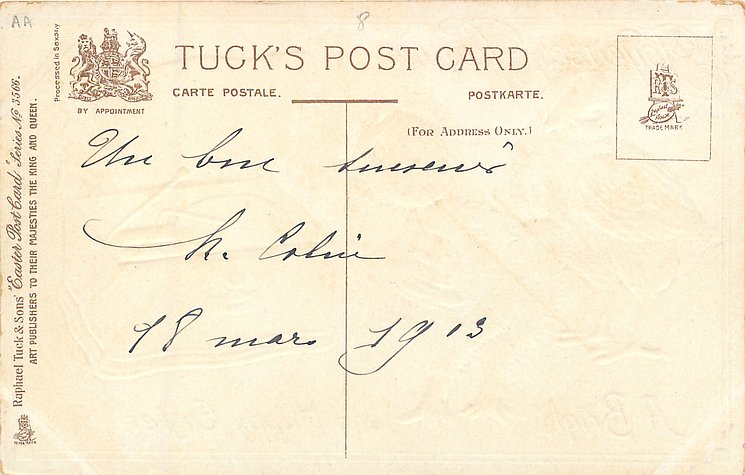 AA
8
Processed in Saxony
BY APPOINTMENT
TUCK'S POST CARD
CARTE POSTALE.
POSTKARTE.
(FOR ADDRESS ONLY.)
RTS
TRADE MARK
Raphael Tuck & Sons' "Easter Post Card" Series Nº 3566.
ART PUBLISHERS TO THEIR MAJESTIES THE KING AND QUEEN.
Un bon
18 mars 1913